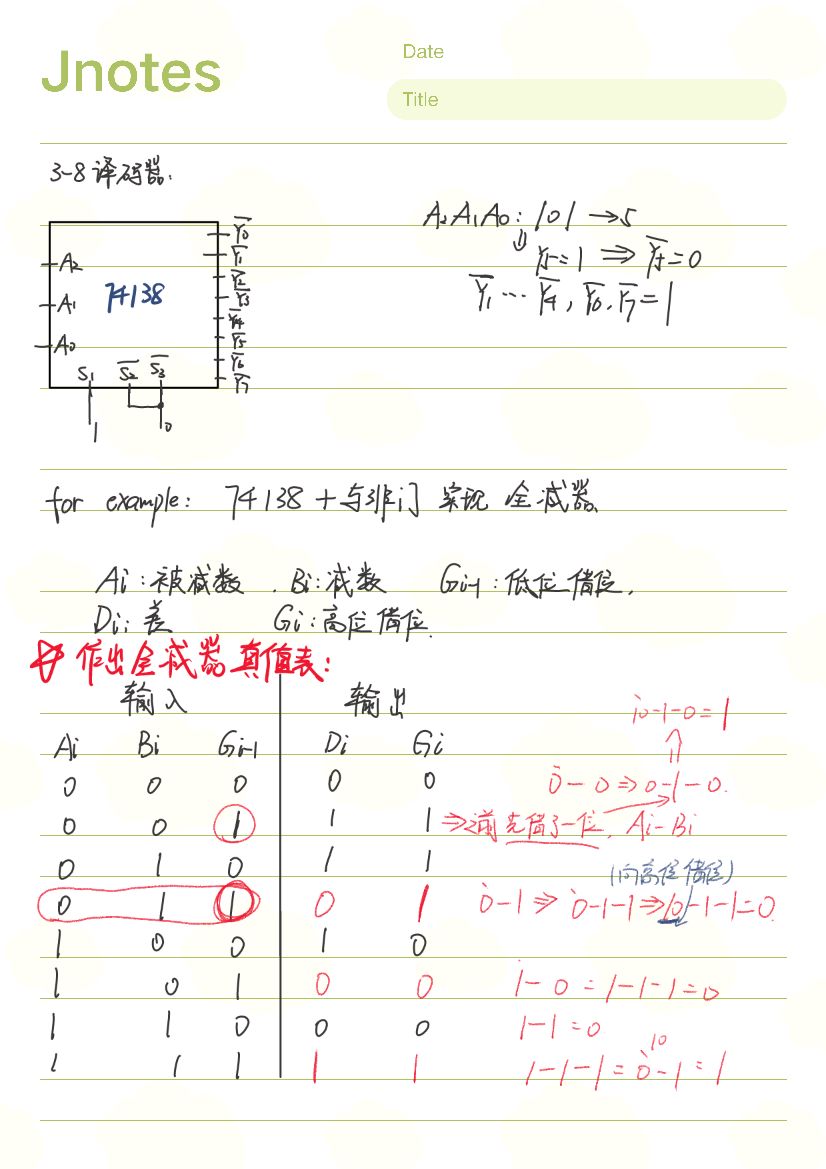 Jnotes
Date
Title
3-8译码器:
74138
A₂
A₁
A₀
S₁ S̅₂ S̅₃
1 0
Y̅₀
Y̅₁
Y̅₂
Y̅₃
Y̅₄
Y̅₅
Y̅₆
Y̅₇
A₂A₁A₀: 101 → 5
⇓ Y₅=1 ⇒ Y̅₅=0
Y̅₁ … Y̅₄, Y̅₆, Y̅₇=1
for example: 74138 + 与非门 实现 全减器
Ai:被减数. Bi:减数 Gi-1:低位借位.
Di:差 Gi:高位借位.
作出全减器真值表:
输入 输出
Ai Bi Gi-1 Di Gi
0 0 0 0 0
0 0 1 1 1
0 1 0 1 1
0 1 1 0 1
1 0 0 1 0
1 0 1 0 0
1 1 0 0 0
1 1 1 1 1
10-1-0=1
⇑
0̇-0⇒0-1-0.
⇒ 先借了一位, Ai-Bi
(向高位借位)
0̇-1⇒0̇-1-1⇒10-1-1=0.
1̇-0=1-1-1=0
1-1=0
10
1-1-1=0̇-1=1